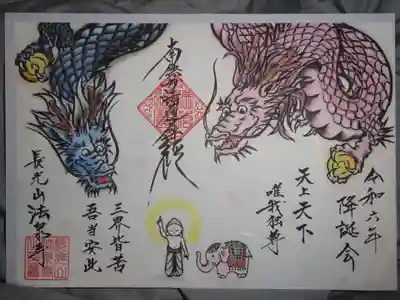 令和六年
降誕会
天上天下
唯我独尊
南無釋迦牟尼佛
三界皆苦
吾当安此
長光山